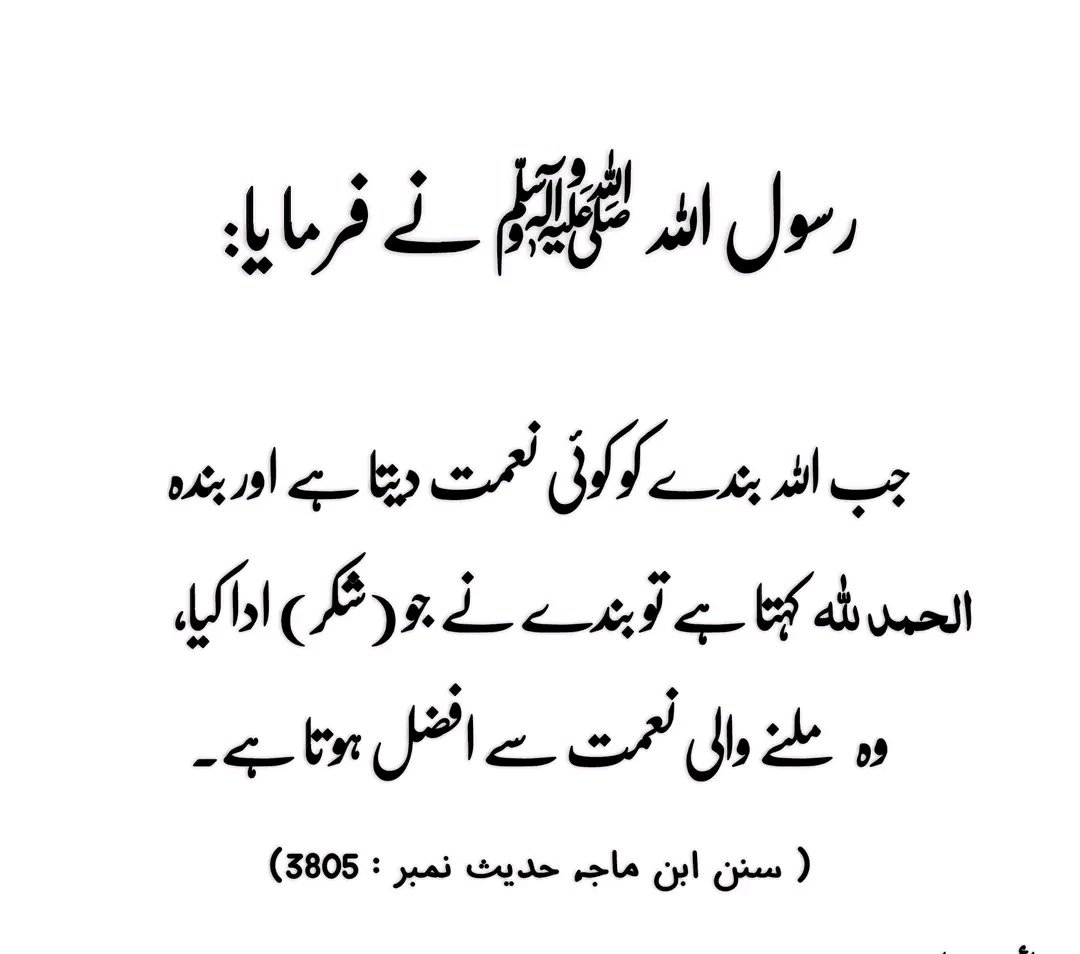 رسول اللہ ﷺ نے فرمایا:
جب اللہ بندے کو کوئی نعمت دیتا ہے اور بندہ
الحمد للہ کہتا ہے تو بندے نے جو (شکر) ادا کیا،
وہ ملنے والی نعمت سے افضل ہوتا ہے۔
( سنن ابن ماجہ حدیث نمبر : 3805)